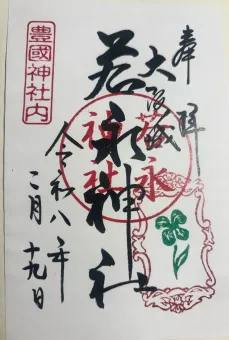 奉拝
大阪城
若永神社
若永神社
豊國神社内
令和八年
二月十九日